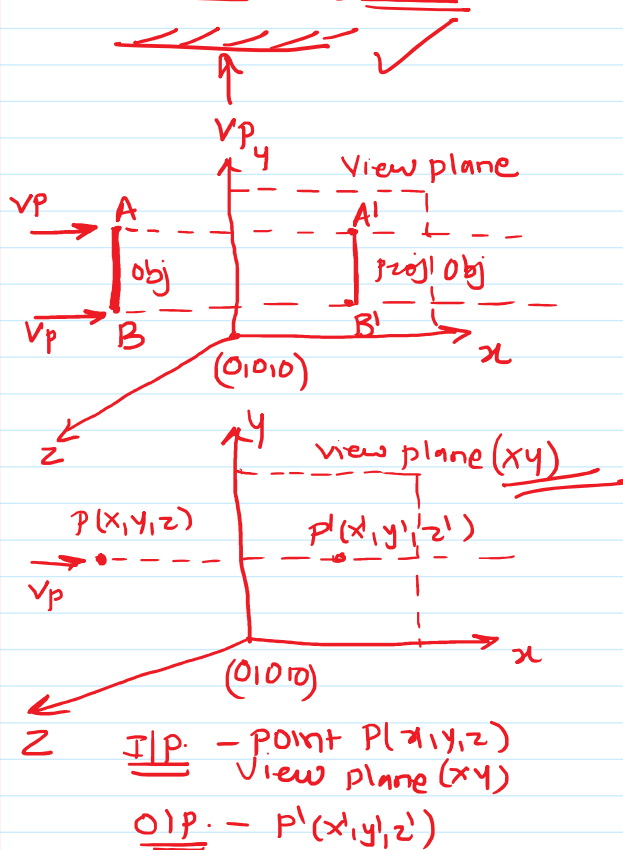 Vp
y
View plane
VP
A
A'
obj
Proj' Obj
Vp
B
B'
x
(0,0,0)
z
y
view plane (xy)
P(x,y,z)
P'(x',y',z')
Vp
x
(0,0,0)
Z
I/P. - point P(x,y,z)
View plane (xy)
O/P. - P'(x',y',z')